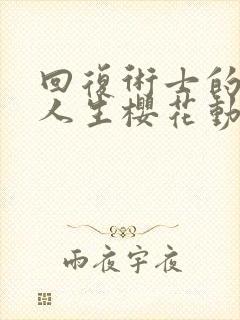 回復術士的
人生櫻花動
雨夜宇夜